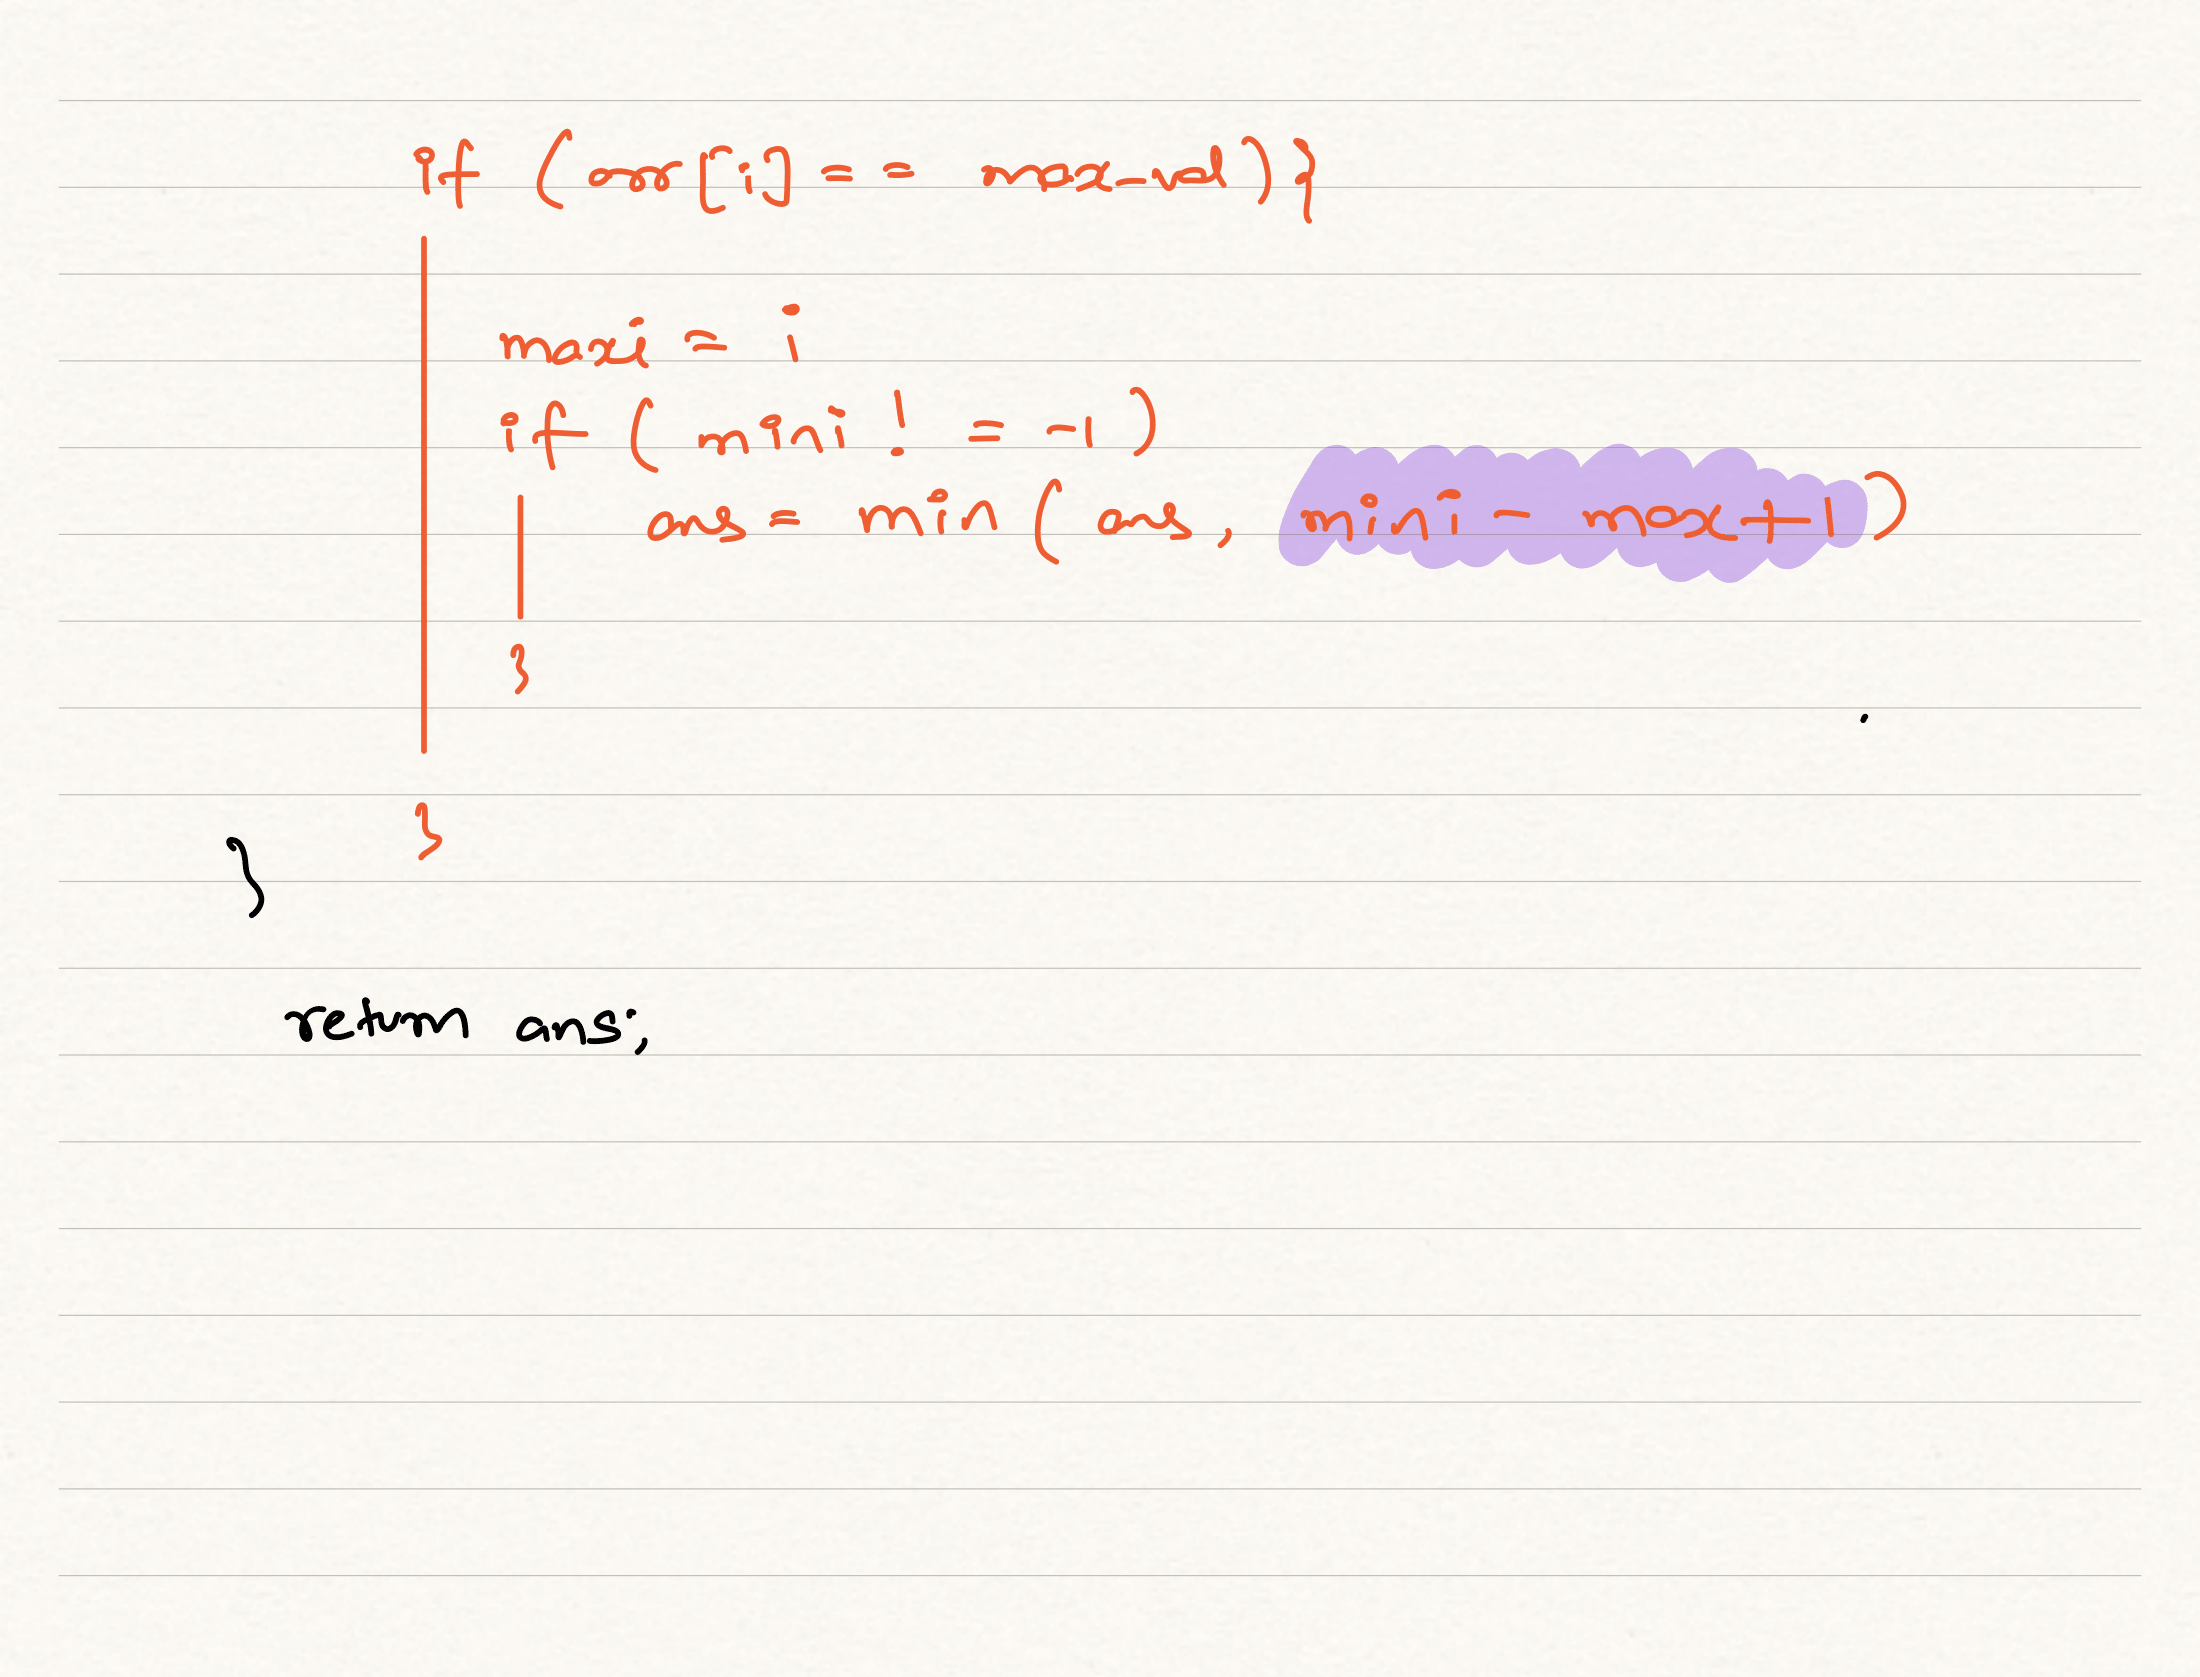 if (arr[i] == max-val)}
maxi = i
if ( mini ! = -1 )
ans = min ( ans, mini - max+1 )
}
}
}
return ans;